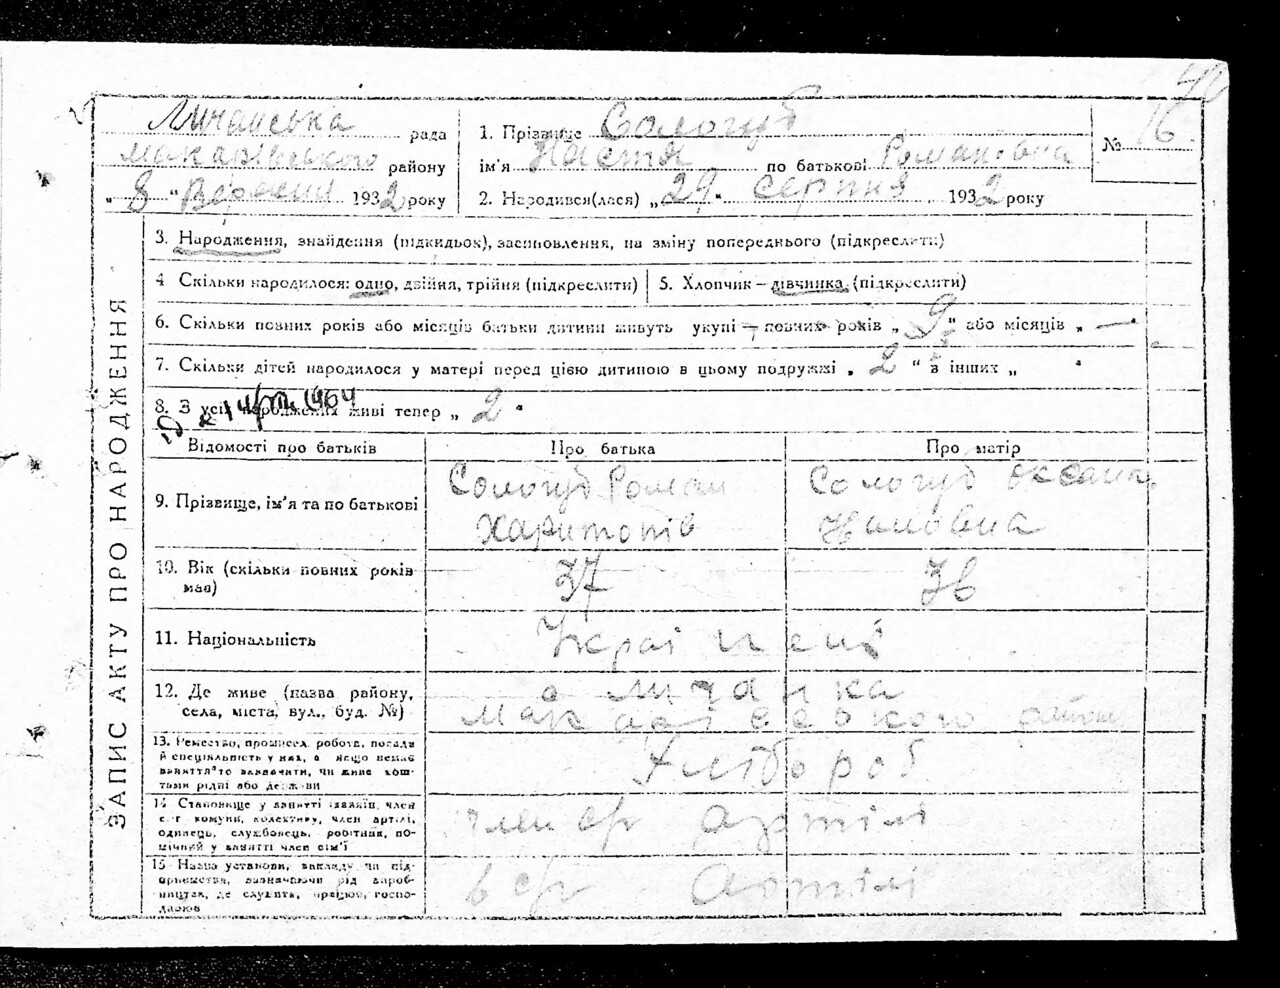 70
Личанська рада
Макарівського району
„ 8 " Вересня 1932 року
1. Прізвище Сологуб
ім'я Настя по батькові Романівна
2. Народився(лася) „ 29 " серпня 1932 року
№ 16
ЗАПИС АКТУ ПРО НАРОДЖЕННЯ
3. Народження, знайдення (підкидьок), засиновлення, на зміну попереднього (підкреслити)
4 Скільки народилося: одно, двійня, трійня (підкреслити)
5. Хлопчик — дівчинка (підкреслити)
6. Скільки повних років або місяців батьки дитини живуть укупі — повних років „ 9 " або місяців „ — "
7. Скільки дітей народилося у матері перед цією дитиною в цьому подружжі „ 2 " з інших „ "
8. З усіх народження живі тепер „ 2 "
1964
Відомості про батьків
Про батька
Про матір
9. Прізвище, ім'я та по батькові
Сологуб Роман
Харитонів
Сологуб Оксана
10. Вік (скільки повних років мав)
37
36
11. Національність
Українці
12. Де живе (назва району, села, міста, вул., буд. №)
с Личанка
Макарівського району
13. Ремество, промисел, робота, посада й спеціальність у них, а якщо немає заняття то зазначити, чи живе коштами рідні або держави
Хлібороб
14 Становище у занятті (хазяїн, член с.-г комуни, колективу, член артілі, одинець, службовець, робітник, помічний у занятті член сім'ї
член с/г артілі
15 Назва установи, закладу чи підприємства, зазначаючи рід виробництва, де служить, працює, господарює
в с/г Артілі